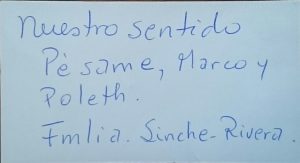 Nuestro sentido
Pé same, Marco y
Poleth.
Fmlia. Sinche-Rivera.